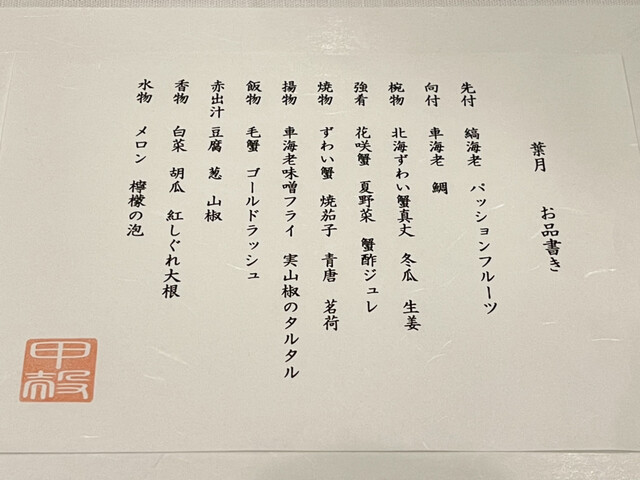 葉月　お品書き
先付　縞海老　パッションフルーツ
向付　車海老　鯛
椀物　北海ずわい蟹真丈　冬瓜　生姜
強肴　花咲蟹　夏野菜　蟹酢ジュレ
焼物　ずわい蟹　焼茄子　青唐　茗荷
揚物　車海老味噌フライ　実山椒のタルタル
飯物　毛蟹　ゴールドラッシュ
赤出汁　豆腐　葱　山椒
香物　白菜　胡瓜　紅しぐれ大根
水物　メロン　檸檬の泡
甲殻